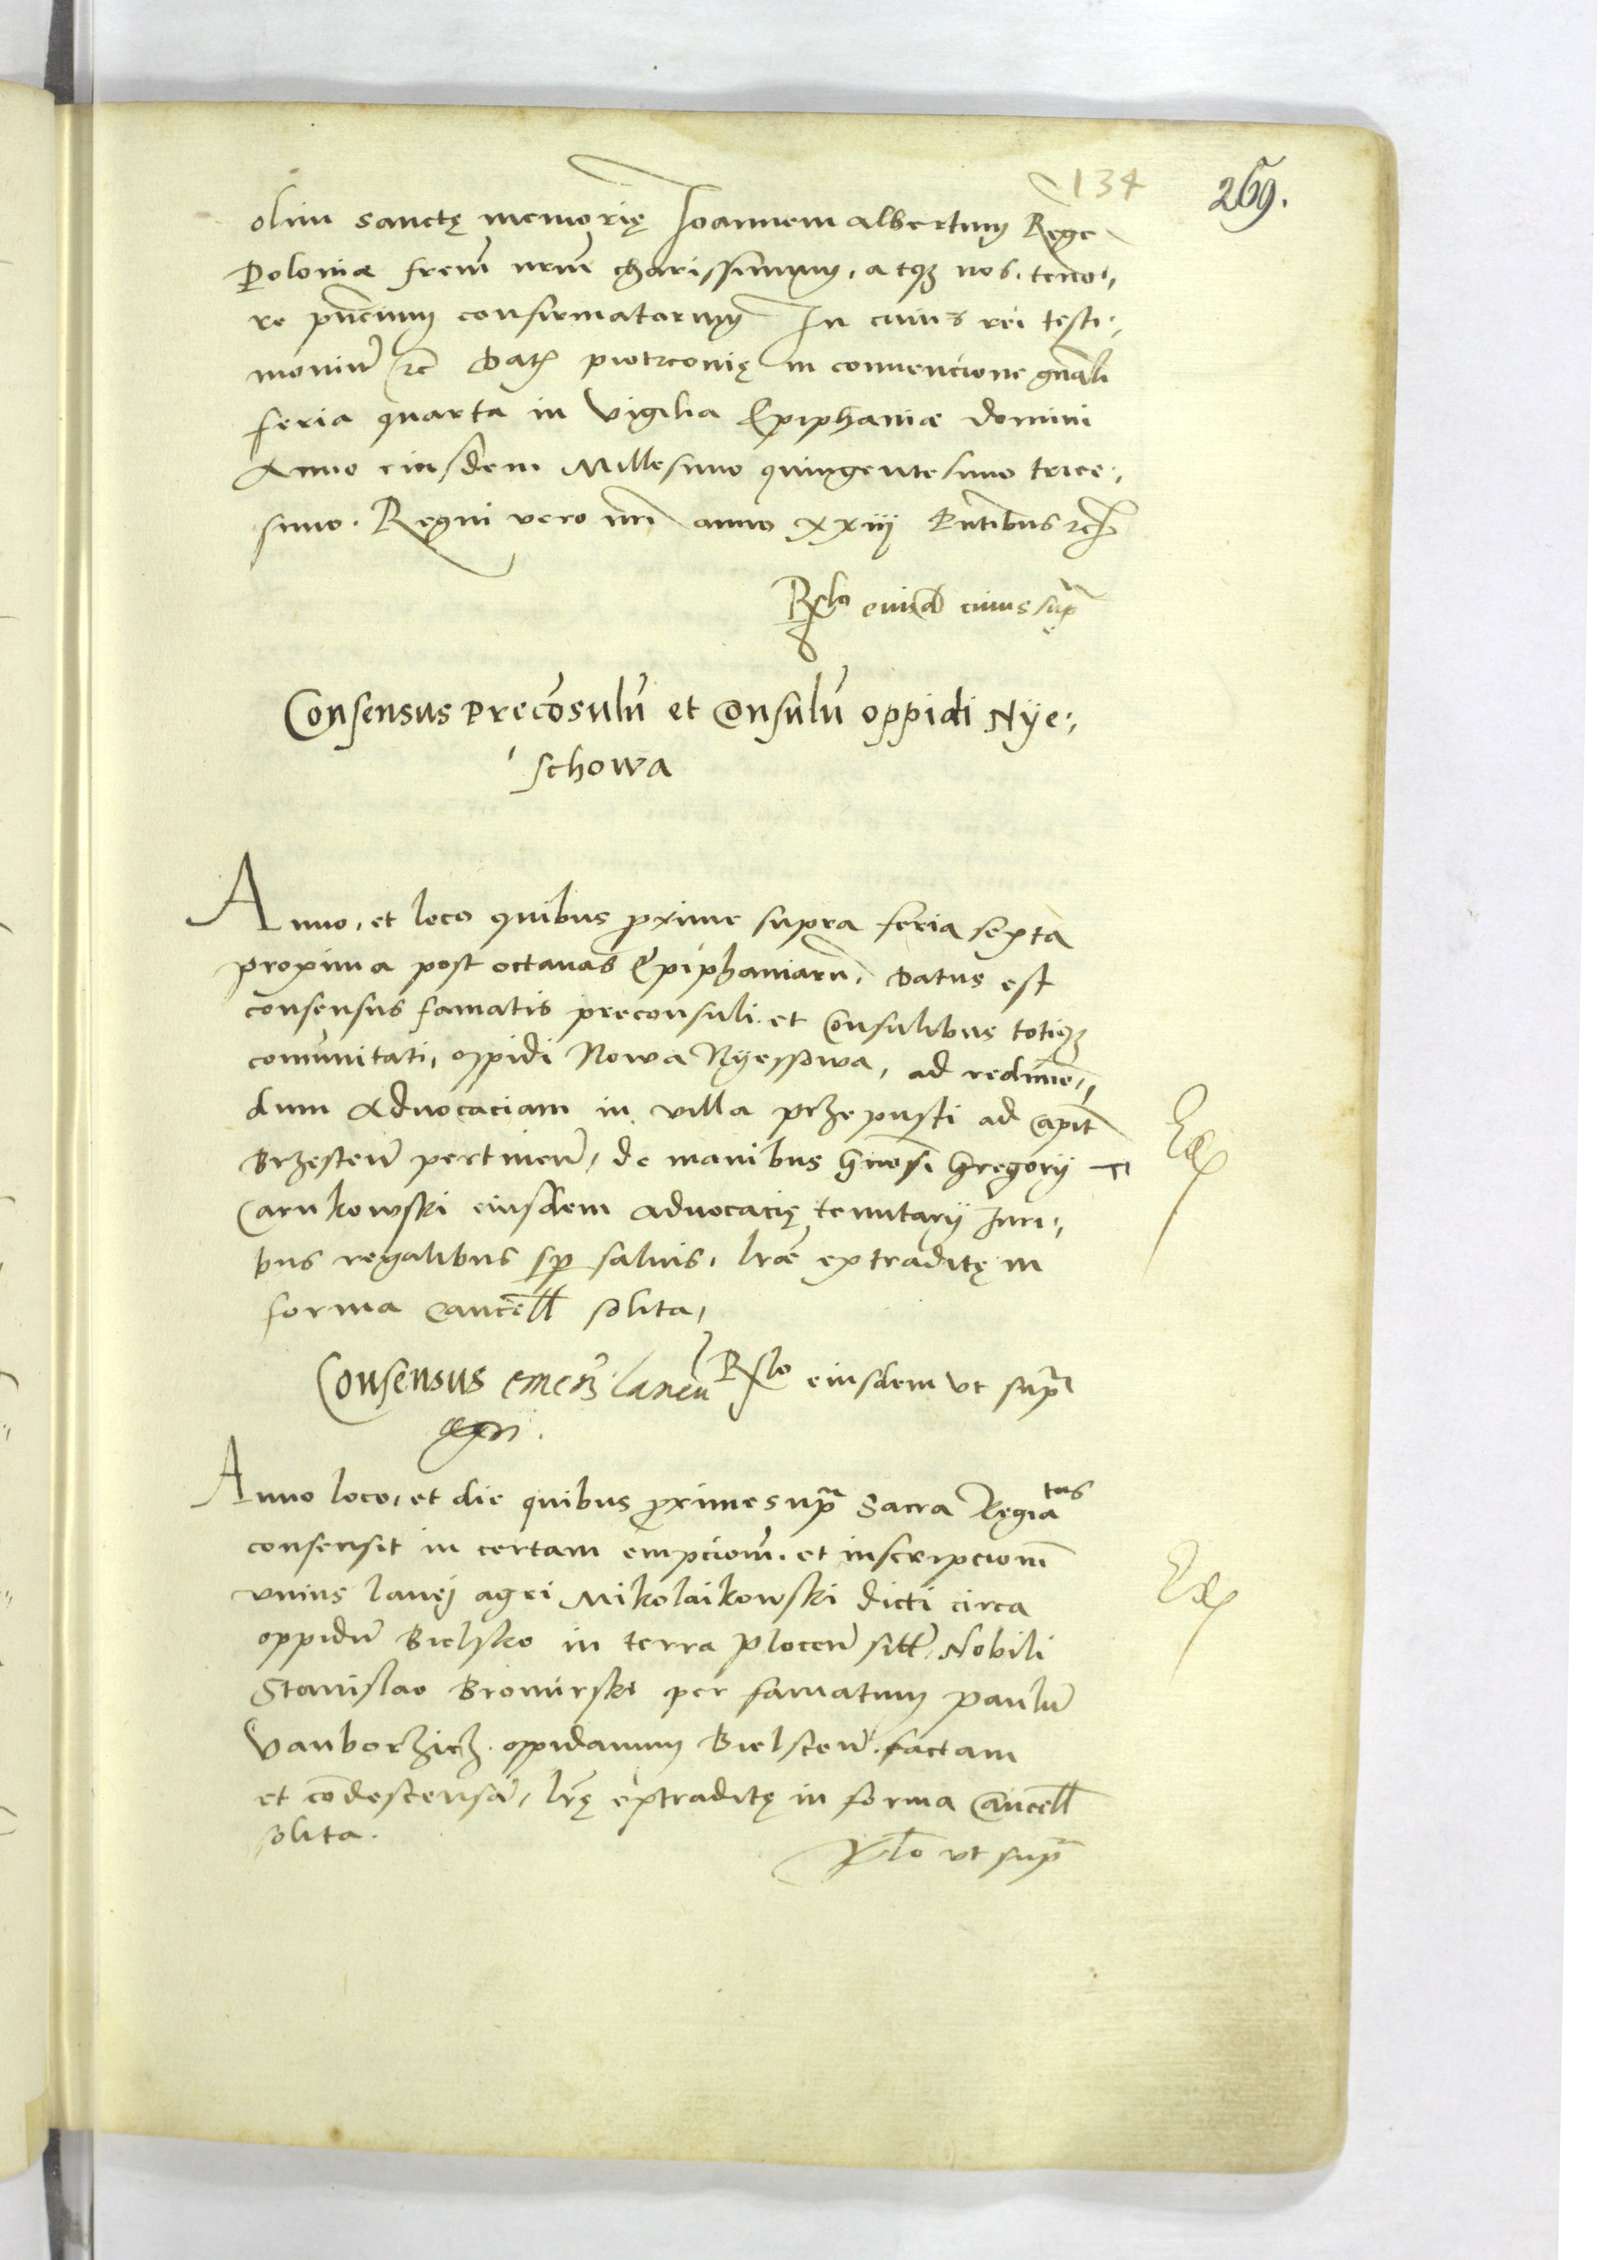 134 269.
olim sanctę memorię Joannem Albertum Rege
Poloniæ frem̄ nrm̄ charissimum, atqꝫ nos, teno,,
re pn̄cium confirmatarum In cuius rei testi,,
moniū ⁊c̄ Datꝫ piotrconię in convencione gn̄ali
feria quarta in vigilia Epiphaniæ domini
Anno eiusdem Millesimo quingentesimo trice,,
simo. Regni vero nrī anno xxiij Pn̄tibus ⁊c̄
Rlo eiusd cuius supͣ
Consensus precōsulū et Consulū oppidi Nye,,
schowa
Anno, et loco quibus ꝓxime supra feria sexta
proxima post octauas Epiphaniarū, datus est
consensus famatis preconsuli et Consulibus totiqꝫ
comūnitati, oppidi Nowa Nyessowa, ad redimē,,
dum Advocaciam in villa przepusti ad Capit
Brzesteñ pertineñ, de manibus Gn̄osi Gregorij
Carnkowski eiusdem advocacię tenutarij Juri,,
bus regalibus sp̄ saluis, lræ extraditę in
forma Cancell solita,
Consensus emen̄ laneū Rlo eiusdem vt supͣ
agri.
Anno loco, et die quibus ꝓxime supͣ Sacra Regia tas
consensit in certam empcionē et inscripcionē
vnius lanej agri Mikolaikowski dicti circa
oppidū Bielsko in terra Ploceñ sitt, Nobili
Stanislao Bromirski per famatum Paulū
Vanborzicz oppidanum Bielsceñ factam
et cōdescensā, lrę extraditę in forma Cancell
solita.
Rlo vt supͣ
Ex
Ex